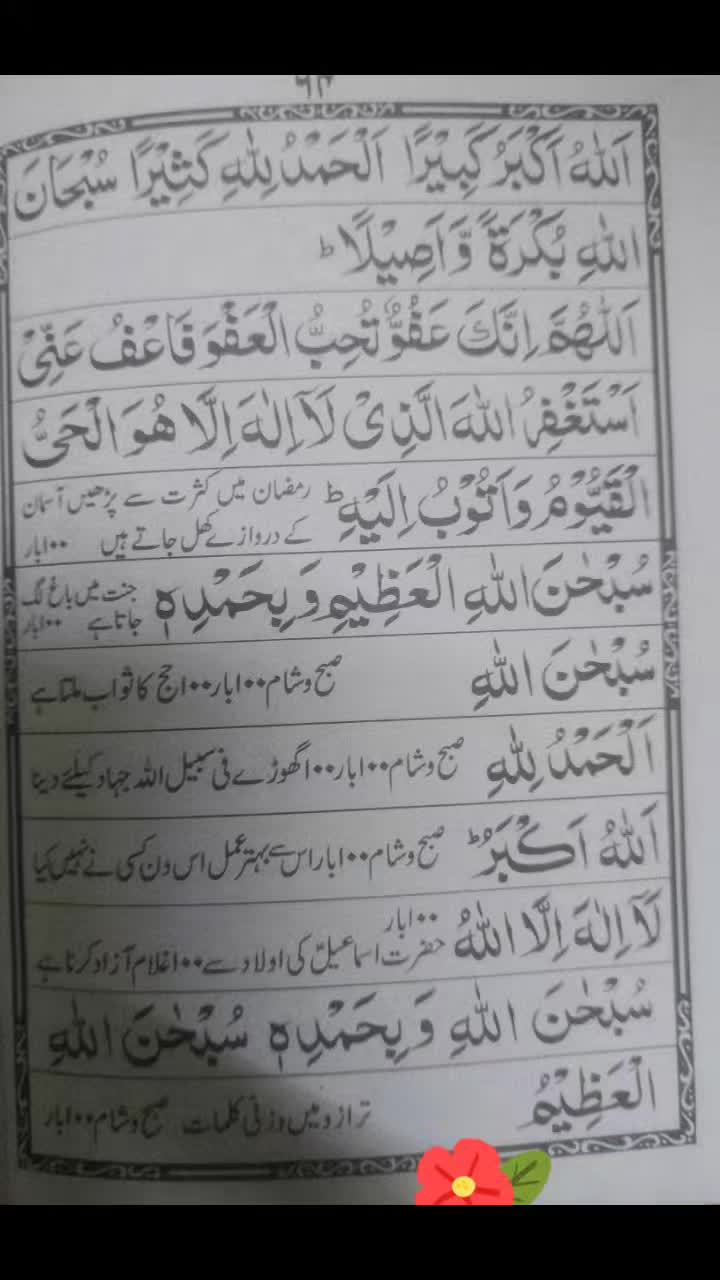 ٦٣
اَللّٰهُ اَكْبَرُ كَبِيْرًا اَلْحَمْدُ لِلّٰهِ كَثِيْرًا سُبْحَانَ
اللّٰهِ بُكْرَةً وَّاَصِيْلًا ؕ
اَللّٰهُمَّ اِنَّكَ عَفُوٌّ تُحِبُّ الْعَفْوَ فَاعْفُ عَنِّىْ
اَسْتَغْفِرُ اللّٰهَ الَّذِىْ لَآ اِلٰهَ اِلَّا هُوَ الْحَىُّ
الْقَيُّوْمُ وَاَتُوْبُ اِلَيْهِ ؕ رمضان میں کثرت سے پڑھیں آسمان
کے دروازے کھل جاتے ہیں ۱۰۰بار
سُبْحٰنَ اللّٰهِ الْعَظِيْمِ وَ بِحَمْدِهٖ جنت میں باغ لگ
جاتا ہے ۱۰۰بار
سُبْحٰنَ اللّٰهِ صبح و شام ۱۰۰بار ۱۰۰حج کا ثواب ملتا ہے
اَلْحَمْدُ لِلّٰهِ صبح و شام ۱۰۰بار ۱۰۰گھوڑے فی سبیل اللہ جہاد کیلئے دینا
اَللّٰهُ اَكْبَرُ ؕ صبح و شام ۱۰۰بار اس سے بہتر عمل اس دن کسی نے نہیں کیا
لَآ اِلٰهَ اِلَّا اللّٰهُ ۱۰۰بار
حضرت اسماعیلؑ کی اولاد سے ۱۰۰غلام آزاد کرنا ہے
سُبْحٰنَ اللّٰهِ وَ بِحَمْدِهٖ سُبْحٰنَ اللّٰهِ
الْعَظِيْمُ ترازو میں وزنی کلمات صبح و شام ۱۰۰بار